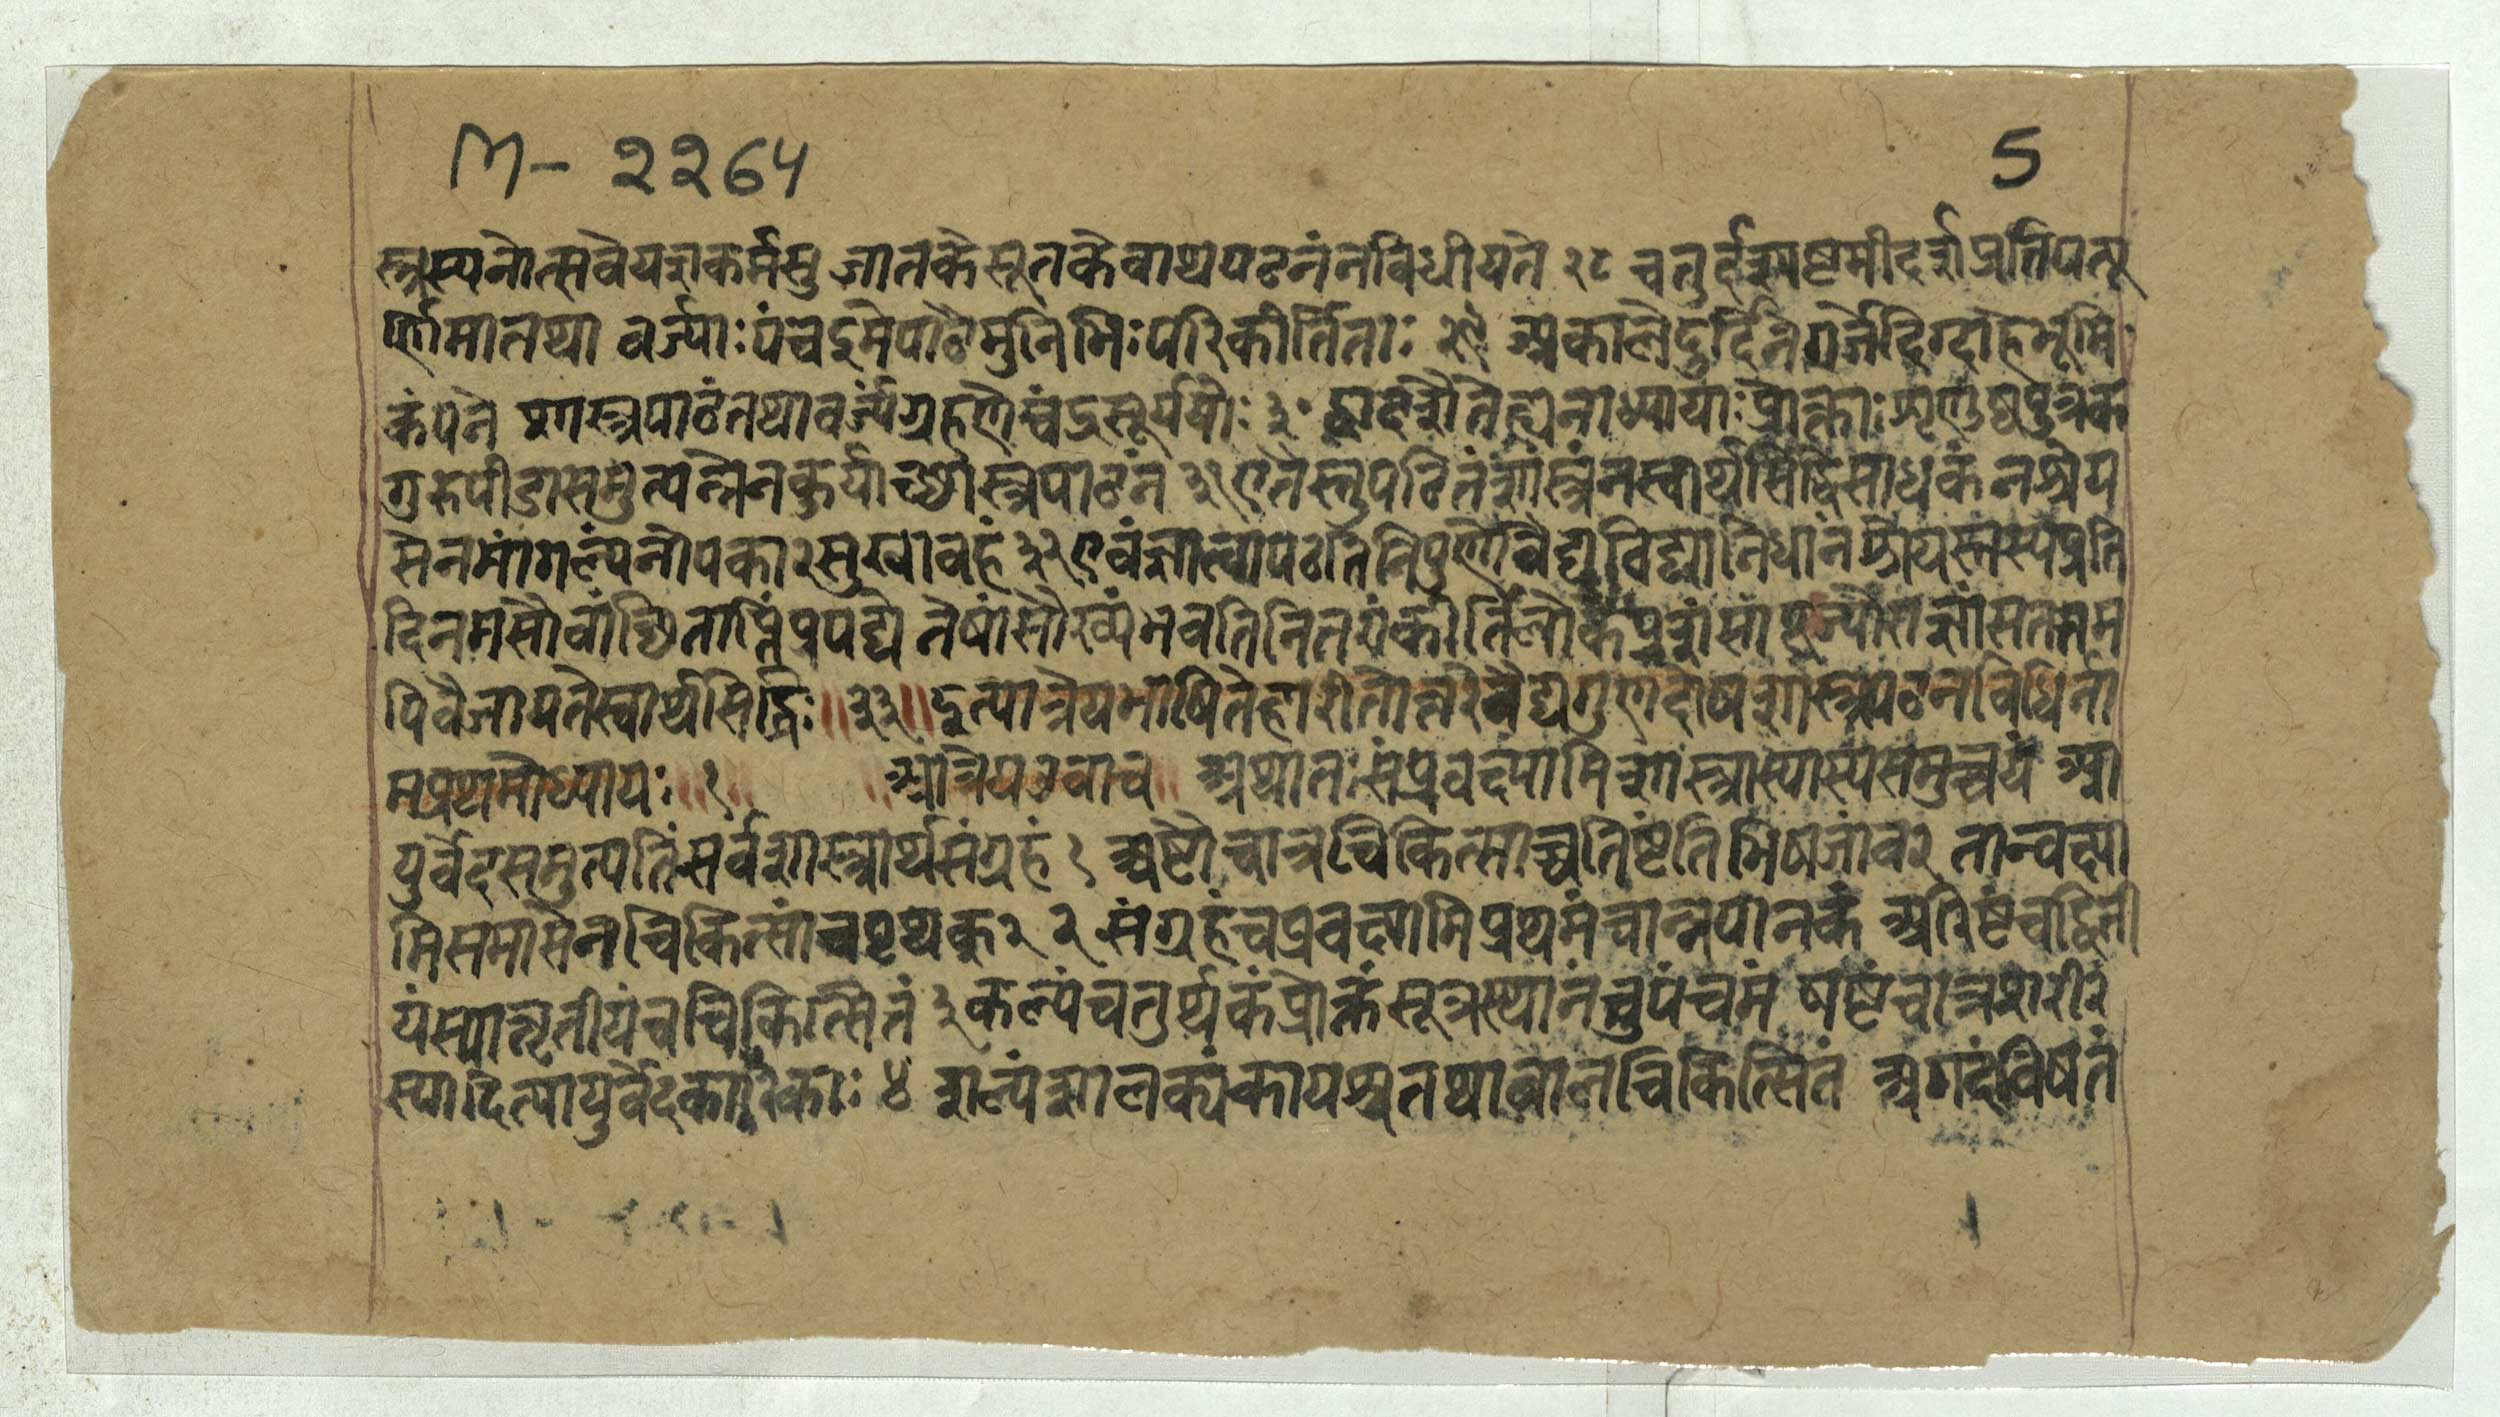 M- २२६५ 5
स्त्रस्यनोत्सवेयज्ञकर्मसु जातकेसूतकेवाथपठनंनविधीयते २८ चतुर्दश्यष्टमीदर्शप्रतिपत्पू
र्णिमातथा वर्ज्याःपंचइमेपाठेमुनिभिःपरिकीर्तिताः २९ अकालेदुर्दिनेगर्जेदिग्दाहेभूमि
कंपने शास्त्रपाठंतथावर्ज्यंग्रहणेचंद्रसूर्ययोः ३० द्वादशैतेह्यनाध्यायाःप्रोक्ताःशृणुष्वपुत्रक
गुरुपीडासमुत्पन्नेनकुर्याच्छास्त्रपाठनं ३१ एतेस्तुपठितंशास्त्रंनस्वार्थसिद्धिसाधकं नश्रेय
सेनमांगल्यंनोपकारसुखावहं ३२ एवंज्ञात्वापठतिनिपुणोवैद्यविद्यानिधानंश्रेयस्तस्यप्रति
दिनमसौवांछिताप्तिंप्रपद्ये तेषांसौख्यंभवतिनितरांकीर्तिलोकेप्रशंसां पूज्योराज्ञांसततम
पिवैजायतेस्वार्थसिद्धिः॥३३॥इत्यात्रेयभाषितेहारीतोत्तरेवैद्यगुणदोषशास्त्रपठनविधिर्ना
मप्रथमोध्यायः॥१॥ ॥आत्रेयउवाच॥ अथातःसंप्रवक्ष्यामिशास्त्रास्यास्यसमुच्चयं आ
युर्वेदसमुत्पतिंसर्वशास्त्रार्थसंग्रहं १ अष्टौचात्रचिकित्साच्चतिष्टंतिभिषजांवर तान्वक्ष्या
मिसमासेनचिकित्सांचपृथक्पृ २ संग्रहंचप्रवक्ष्यामिप्रथमंचान्नपानकं अरिष्टंचद्विती
यंस्यात्तृतीयंचचिकित्सितं ३ कल्पंचतुर्थकंप्रोक्तंसूत्रस्थानंतुपंचमं षष्टंचात्रशरीरं
स्यादित्यायुर्वेदकारिकाः ४ शल्यंशालक्यंकायश्चतथाबालचिकित्सितं अगदंविषतं